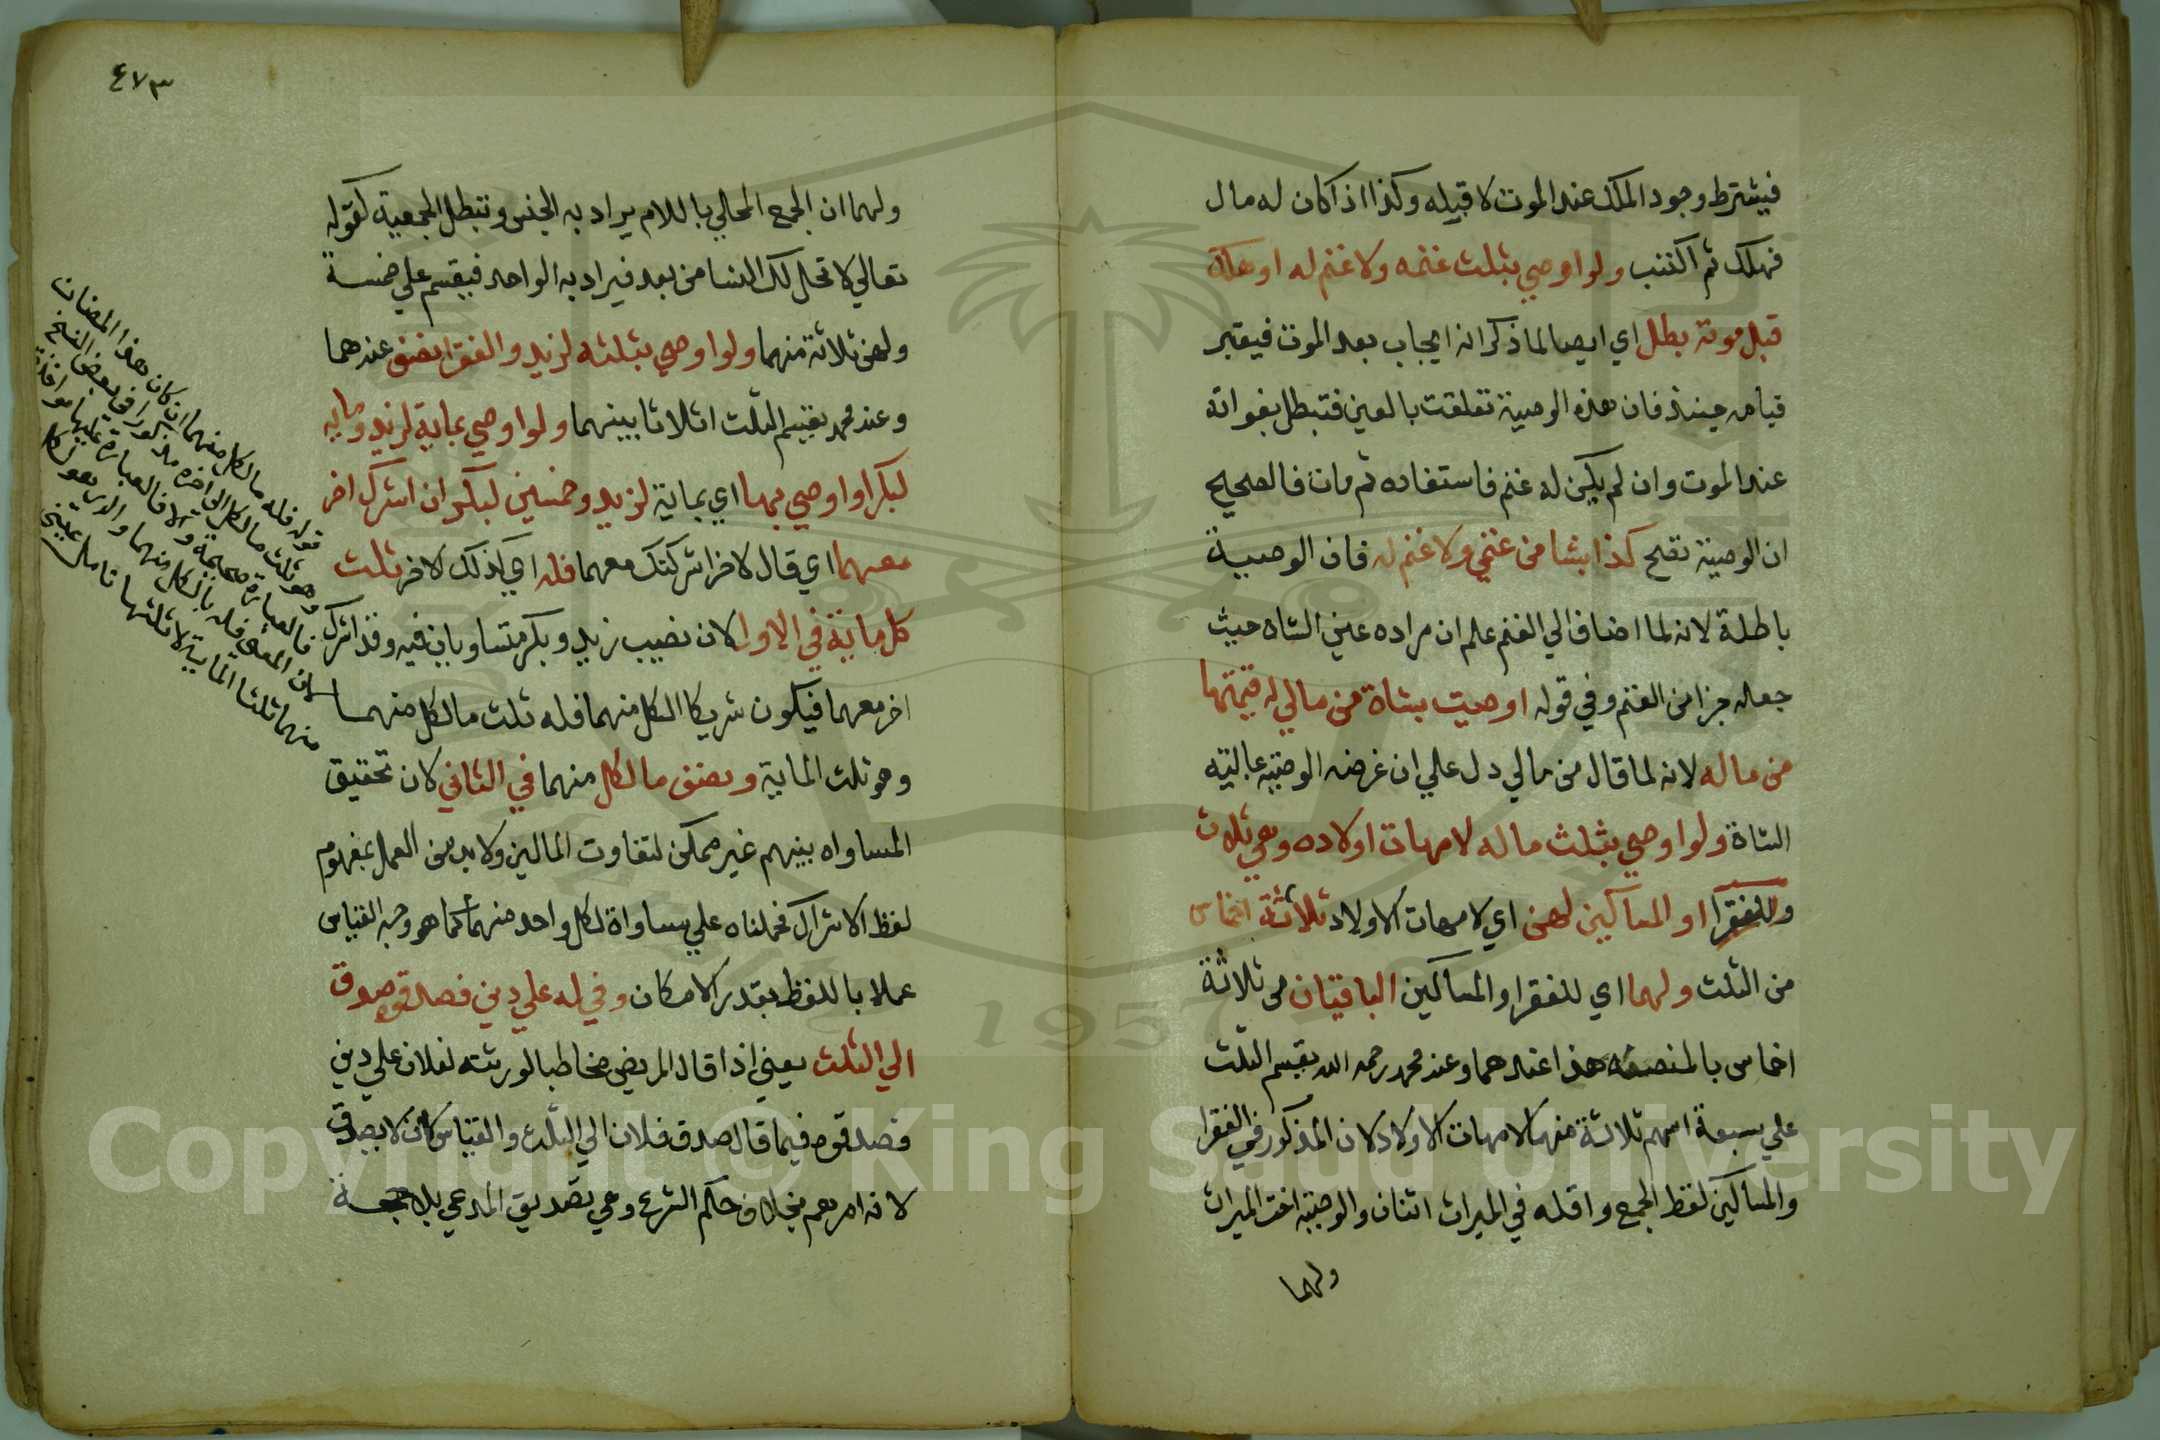 فيشترط وجود الملك عند الموت لا قبيله وكذا اذا كان له مال
فهلك ثم اكتسب ولو اوصي بثلث غنمه ولا غنم له او هلك
قبل موته بطل اي ايصا لما ذكر انه ايجاب بعد الموت فيعتبر
قيامه حينئذ فان هذه الوصية تعلقت بالعين فتبطل بفواته
عند الموت وان لم يكن له غنم فاستفاده ثم مات فالصحيح
ان الوصية تصح كذا بشا من غنمي ولا غنم له فان الوصية
باطلة لانه لما اضاف الي الغنم علم ان مراده عين الشاة حيث
جعله جزا من الغنم وفي قوله اوصيت بشاة من مالي له قيمتها
من ماله لانه لما قال من مالي دل علي ان غرضه الوصية بمالية
الشاة ولو اوصي بثلث ماله لامهات اولاده وهي ثلاث
وللفقرا او المساكين لهن اي لامهات الاولاد ثلاثة اخماس
من الثلث ولهما اي للفقرا والمساكين الباقيان من ثلاثة
اخماس بالمنصفه هذا عندهما وعند محمد رحمه الله يقسم الثلث
علي سبعة اسهم ثلاثة منها لامهات الاولاد لان المذكور في الفقرا
والمساكين لفظ الجمع واقله في الميراث اثنان والوصية اخت الميراث
ولهما
٤٧٣
ولهما ان الجمع المحلي باللام يراد به الجنس وتبطل الجمعية لقوله
تعالي لا تحل لك النسا من بعد فيراد به الواحد فيقسم علي خمسة
ولهن ثلاثة منهما ولو اوصي بثلثه لزيد والفقرا نصف عندهما
وعند محمد يقسم الثلث اثلاثا بينهما ولو اوصي بماية لزيد وماية
لبكر او اوصي بهما اي بماية لزيد وخمسين لبكر ان اشرك اخر
معهما اي قال لاخر اشركتك معهما فله اي لذلك الاخر ثلث
كل ماية في الاول لان نصيب زيد وبكر متساويان فيه وقد اشرك
اخر معهما فيكون شريكا لكل منهما فله ثلث ما لكل منهما
وهو ثلث الماية ونصف ما لكل منهما في الثاني لان تحقيق
المساواه بينهم غير ممكن لتفاوت المالين ولابد من العمل بمفهوم
لفظ الاشراك فحملناه علي مساواة لكل واحد منهما كما هو وجه القياس
عملا باللفظ بقدر الامكان وفي له علي دين فصدقوه صدق
الي الثلث يعني اذا قال المريض مخاطبا لورثته لفلان علي دين
فصدقوه فيما قال صدق فلان الي الثلث والقياس كان لا يصدق
لانه امرهم بخلاف حكم الشرع وهي تصديق المدعي بلا حجة
قوله فله ما لكل منهما ان كان هذا المضاف
وهو ثلث ما لكل الي اخره مذكورا في بعض النسخ
فالعبارة صحيحة والا فالعبارة عليها مواخذة
لان المعني فله بالكل منهما والذي يقول لكل
منهما ثلثا الماية لا ثلثها تامل